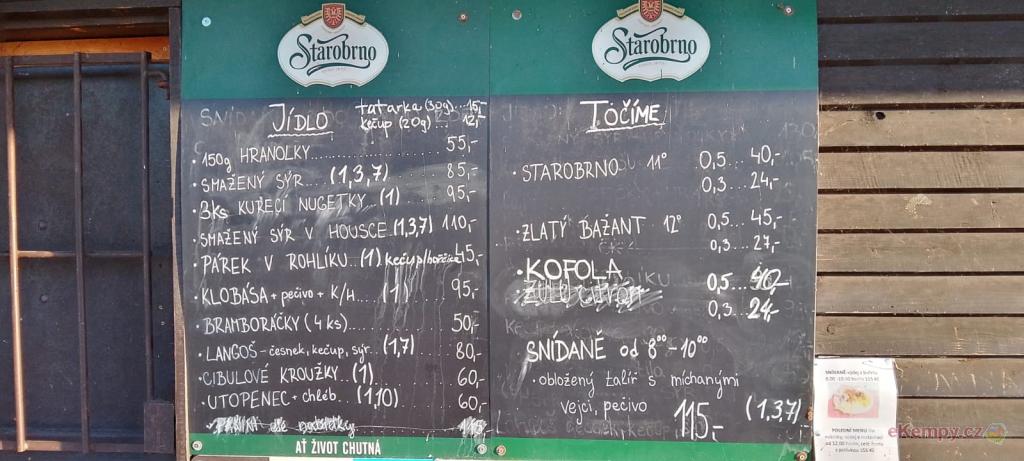 Starobrno
JÍDLO
tatarka (30g)...15,-
kečup (20g)...12,-
• 150g HRANOLKY...55,-
• SMAŽENÝ SÝR...(1,3,7) 85,-
• 3ks KUŘECÍ NUGETKY..(1) 95,-
SMAŽENÝ SÝR V HOUSCE.(1,3,7) 110,-
• PÁREK V ROHLÍKU..(1) kečup/hořčice 45,-
• KLOBÁSA + pečivo + K/H....(1) 95,-
• BRAMBORÁČKY (4 ks)...50,-
• LANGOŠ - česnek, kečup, sýr..(1,7) 80,-
• CIBULOVÉ KROUŽKY..(1) 60,-
• UTOPENEC + chléb..(1,10) 60,-
AŤ ŽIVOT CHUTNÁ
Starobrno
TOČÍME
• STAROBRNO 11° 0,5...40,-
0,3...24,-
• ZLATÝ BAŽANT 12° 0,5...45,-
0,3...27,-
• KOFOLA 0,5...40,-
0,3..24,-
SNÍDANĚ od 8⁰⁰-10⁰⁰
• obložený talíř s míchanými
vejci, pečivo 115,- (1,3,7)
eKempy.cz